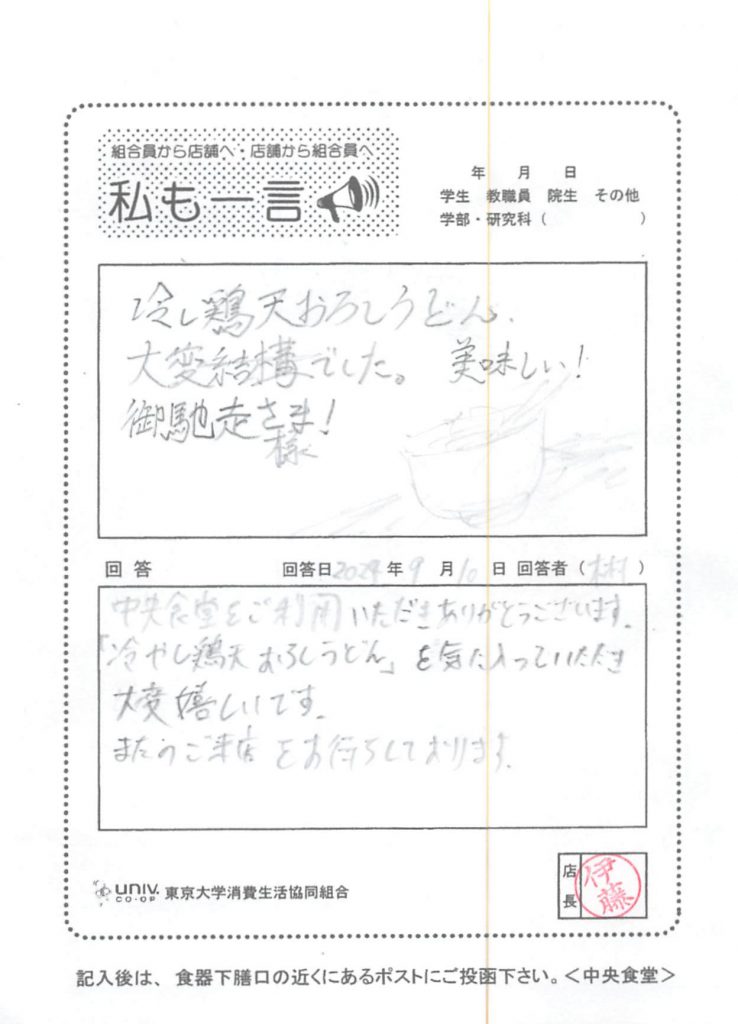 組合員から店舗へ・店舗から組合員へ
私も一言
年 月 日
学生 教職員 院生 その他
学部・研究科( )
冷し鶏天おろしうどん、
大変結構でした。 美味しい!
御馳走さま!
様
回答 回答日2024年9月10日 回答者( )
中央食堂をご利用いただきありがとうございます。
「冷やし鶏天おろしうどん」を気に入っていただき
大変嬉しいです。
またのご来店をお待ちしております。
UNIV.
CO-OP
東京大学消費生活協同組合
店長
伊藤
記入後は、食器下膳口の近くにあるポストにご投函下さい。<中央食堂>